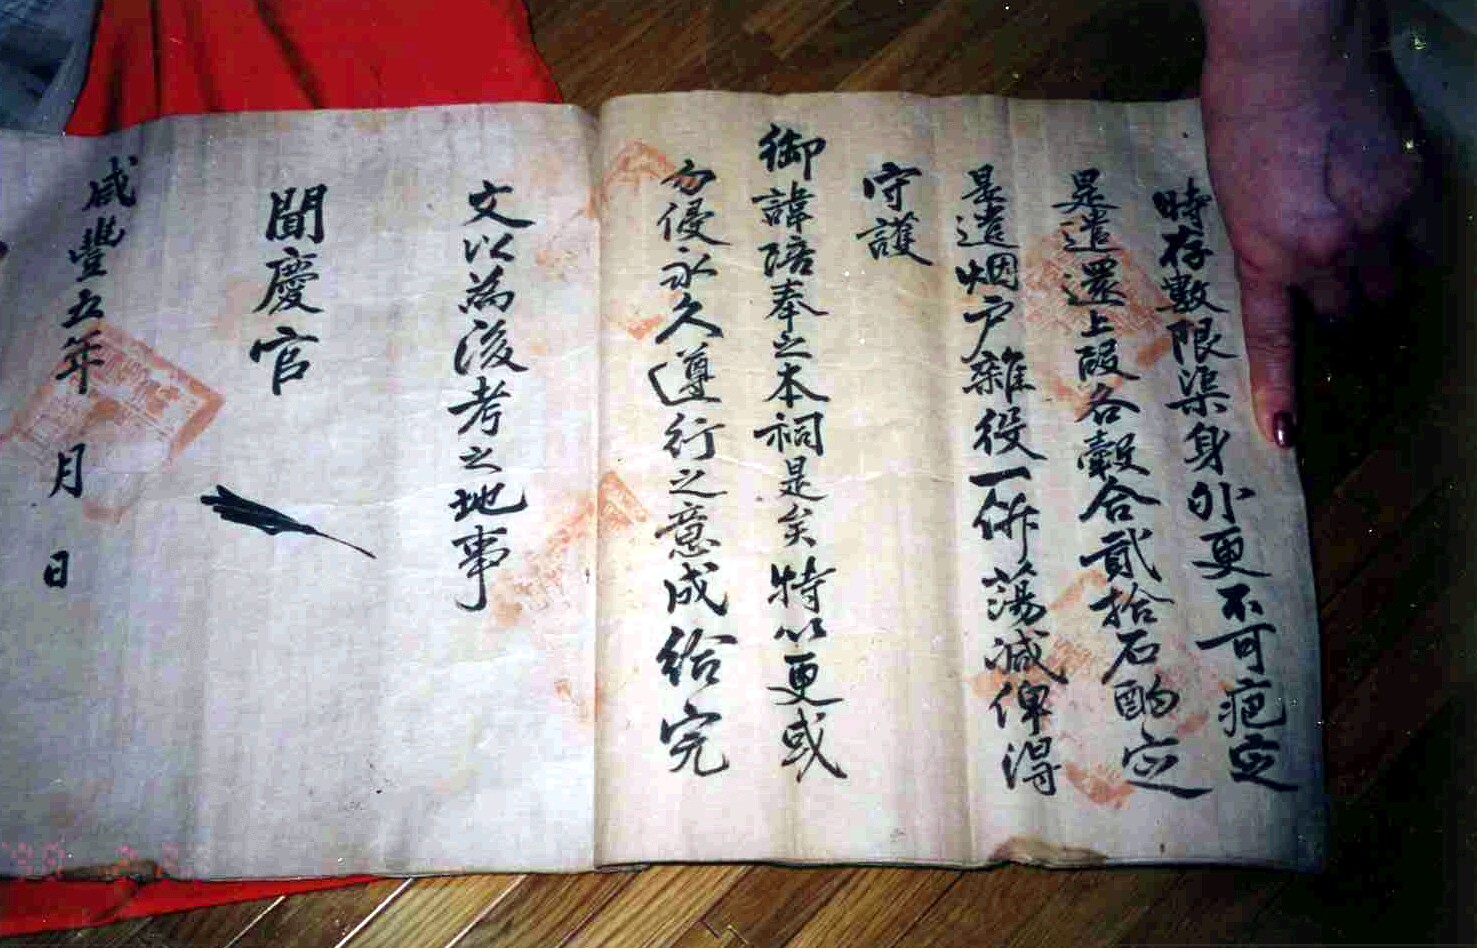 時存數限渠身外更不可疤定
是遣還上叚各穀合貳拾石酌定
是遣烟户雜役一併蕩减俾得
守護
御諱陪奉之本祠是矣特以更或
勿侵永久遵行之意成給完
文以為後考之地事
聞慶官
咸豐五年 月 日